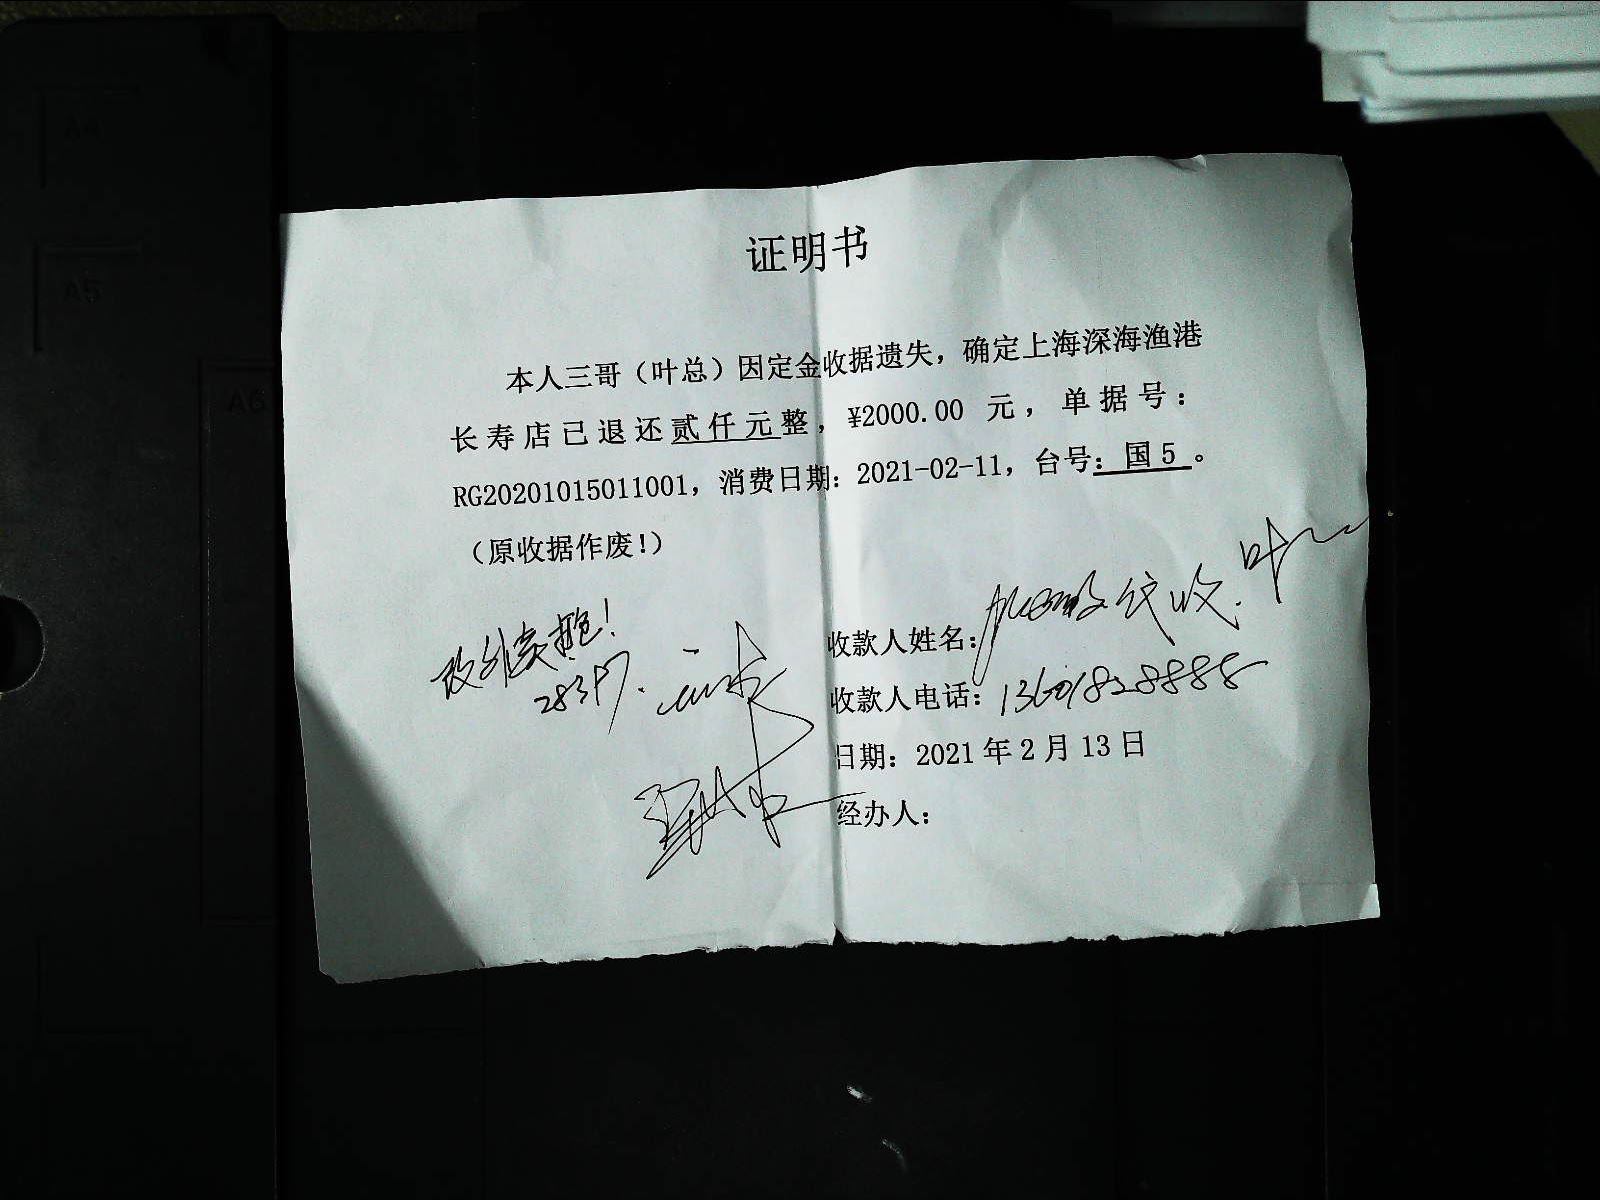 证明书
本人三哥（叶总）因定金收据遗失，确定上海深海渔港
长寿店已退还贰仟元整，¥2000.00 元，单据号：
RG20201015011001，消费日期：2021-02-11，台号：国5。
（原收据作废！）
收款人姓名： 代收. 叶
收款人电话：13601828888
日期：2021年2月13日
经办人：
A4
A5
A6